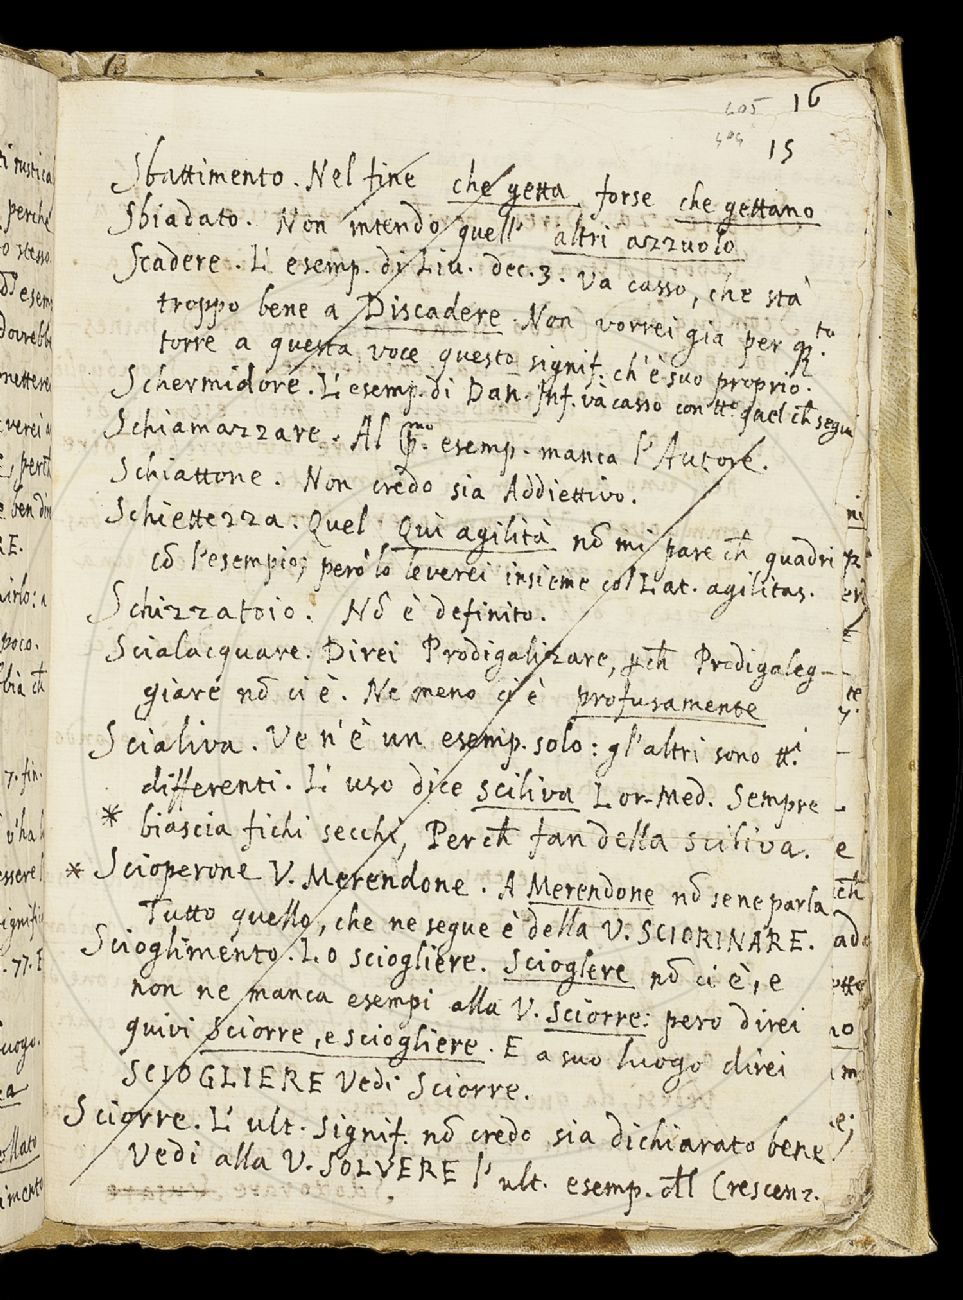 605 16
604 15
Sbattimento. Nel fine che getta forse che gettano
Sbiadato. Non intendo quell' altri azzuolo
Scadere. L'esemp. di Liv. dec. 3. va casso, che stà
troppo bene a Discadere. Non vorrei gia per q.to
torre a questa voce questo signif. ch'è suo proprio.
Schermidore. L'esemp. di Dan. Inf. và casso con tt.o quel ch̃ segue
Schiamazzare. Al p.mo esemp. manca l'Autore.
Schiattone. Non credo sia Addiettivo.
Schiettezza. Quel Quì agilità nõ mi pare ch̃ quadri
cõ l'esempio; però lo leverei insieme col Lat. agilitas.
Schizzatoio. Nõ è definito.
Scialacquare. Direi Prodigalizare, p̱ch̃ Prodigaleg-
giare nõ ci è. Ne meno ci è profusamente
Scialiva. Ve n'è un esemp. solo: gl'altri sono tt.i
differenti. L'uso dice sciliva Lor. Med. Sempre
* biascia fichi secchi, Perch̃ fan della sciliva.
* Scioperone V. Merendone. A Merendone nõ se ne parla
Tutto quello, che ne segue è della V. SCIORINARE.
Scioglimento. Lo sciogliere. Scioglere nõ ci è, e
non ne manca esempi alla V. Sciorre: pero direi
quivi sciorre, e sciogliere. E a suo luogo direi
SCIOGLIERE Vedi Sciorre.
Sciorre. L'ult. signif. nõ credo sia dichiarato bene
Vedi alla V. SOLVERE l'ult. esemp. del Crescenz.